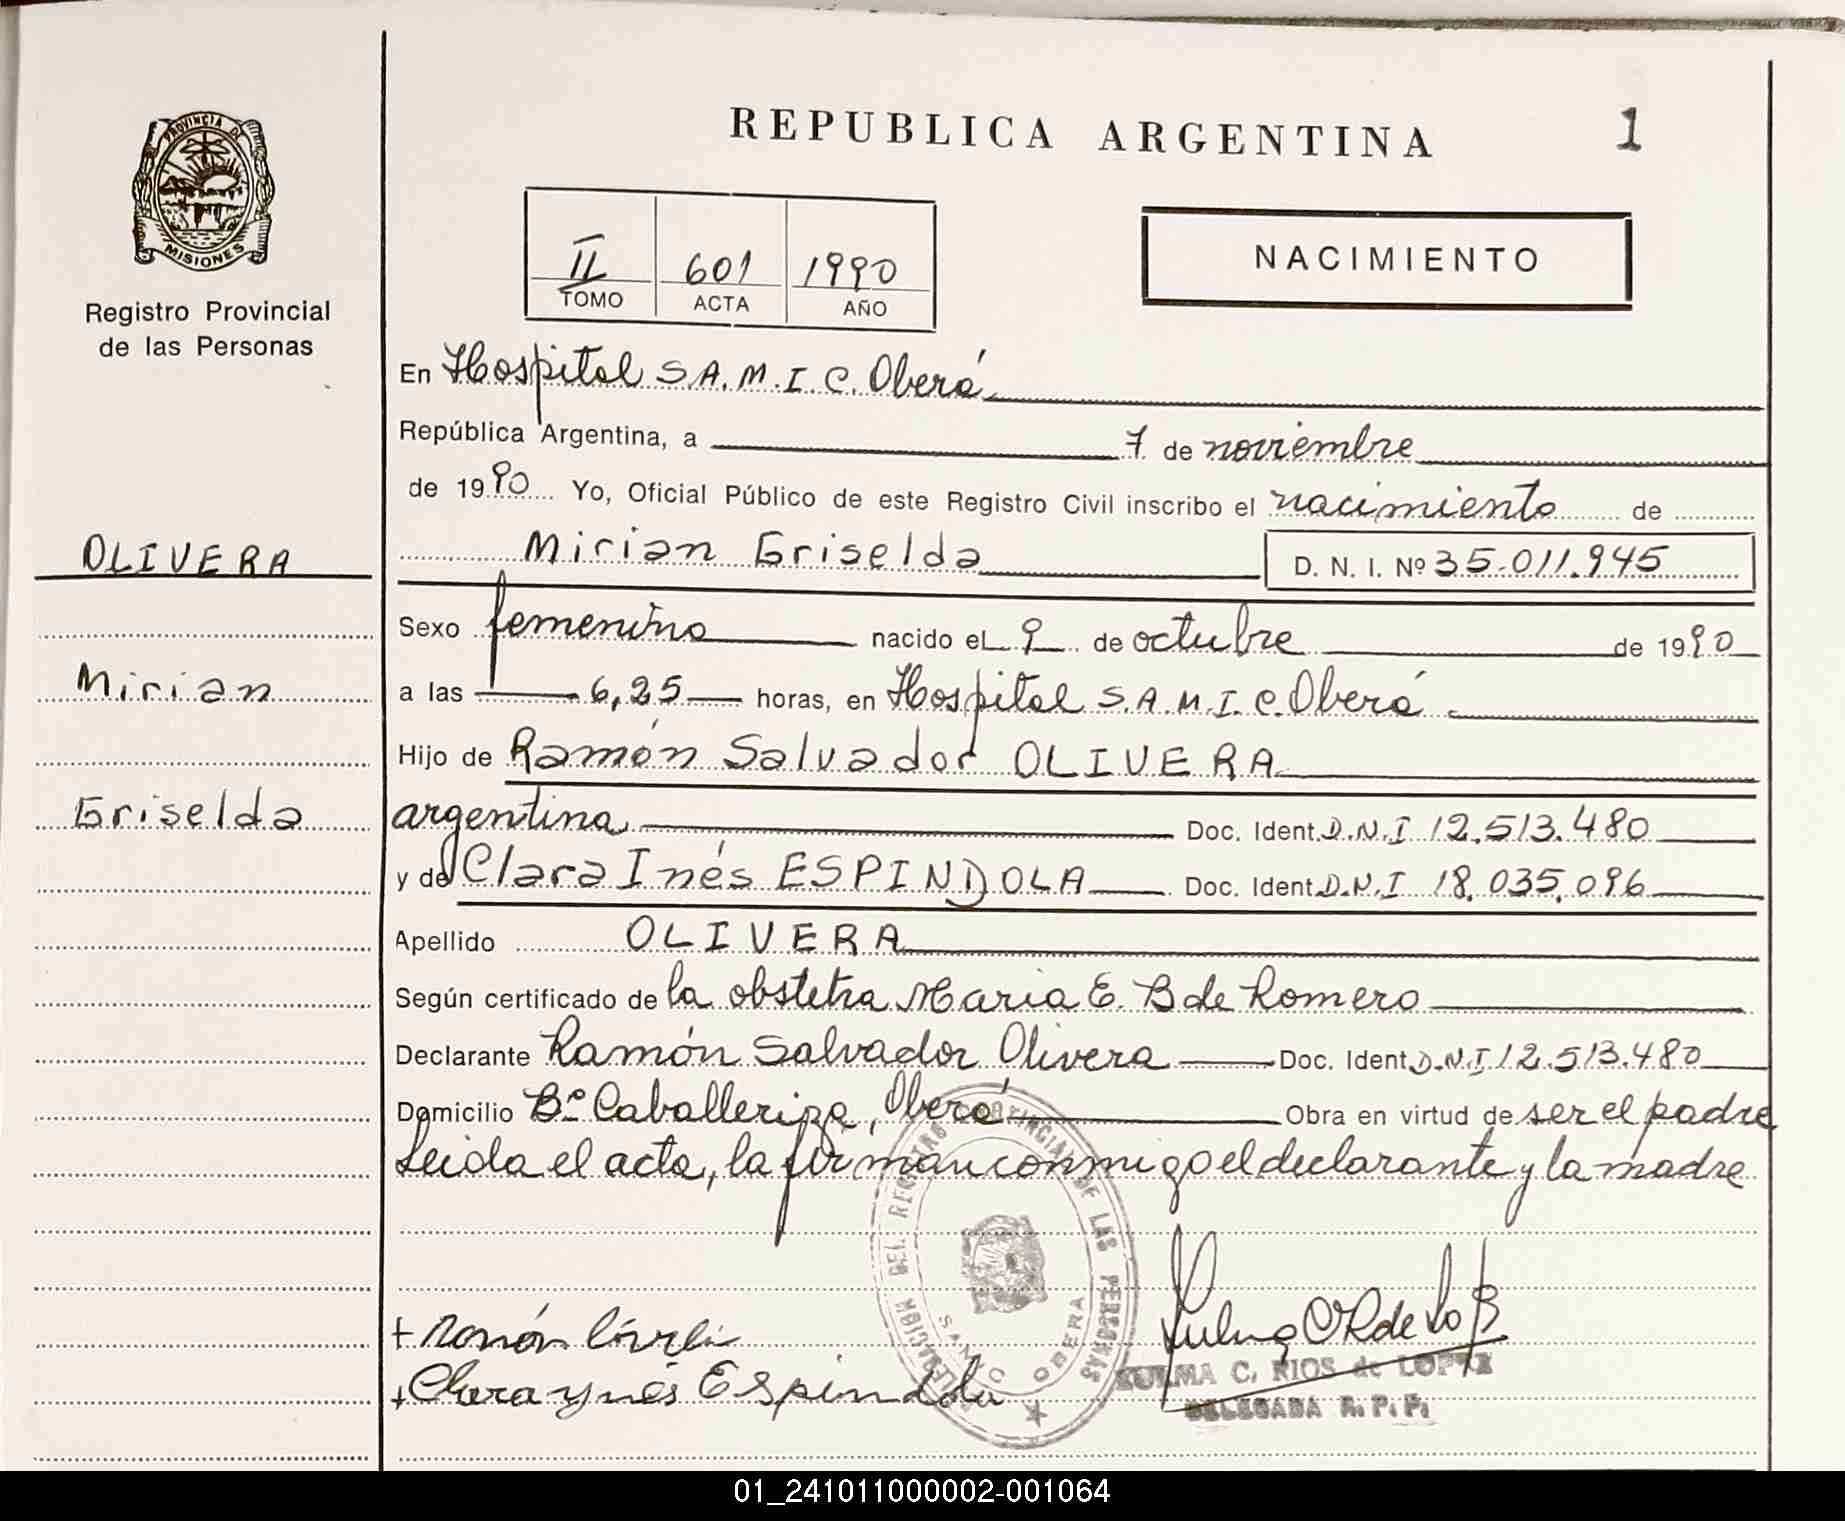 REPUBLICA ARGENTINA
1
PROVINCIA DE
MISIONES
Registro Provincial
de las Personas
II 601 1990
TOMO ACTA AÑO
NACIMIENTO
En Hospital S.A.M.I.C. Oberá
República Argentina, a 7 de noviembre
de 1990 Yo, Oficial Público de este Registro Civil inscribo el nacimiento de
Mirian Griselda D. N. I. Nº 35.011.945
OLIVERA
Mirian
Griselda
Sexo femenino nacido el 9 de octubre de 1990
a las 6,25 horas, en Hospital S.A.M.I.C. Oberá
Hijo de Ramón Salvador OLIVERA
argentina Doc. Ident. D.N.I 12.513.480
y de Clara Inés ESPINDOLA Doc. Ident. D.N.I 18.035.096
Apellido OLIVERA
Según certificado de la obstetra Maria E. B de Romero
Declarante Ramón Salvador Olivera Doc. Ident. D.N.I 12.513.480
Domicilio Bº Caballeriza, Oberá Obra en virtud de ser el padre
Leida el acta, la firman conmigo el declarante y la madre
DEL REGISTRO PROVINCIAL DE LAS PERSONAS
OBERA
+ Ramón
+ Clara ynés Espindola
ZULMA C. RIOS de LOPEZ
DELEGADA R. P. P.
01_241011000002-001064